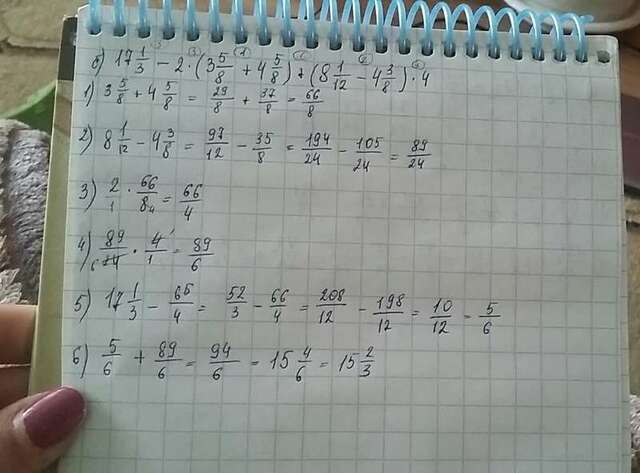 б) 17 1/3 - 2 · (3 5/8 + 4 5/8) + (8 1/12 - 4 3/8) · 4
1) 3 5/8 + 4 5/8 = 29/8 + 37/8 = 66/8
2) 8 1/12 - 4 3/8 = 97/12 - 35/8 = 194/24 - 105/24 = 89/24
3) 2/1 · 66/8 4 = 66/4
4) 89/24 6 · 4/1 1 = 89/6
5) 17 1/3 - 66/4 = 52/3 - 66/4 = 208/12 - 198/12 = 10/12 = 5/6
6) 5/6 + 89/6 = 94/6 = 15 4/6 = 15 2/3